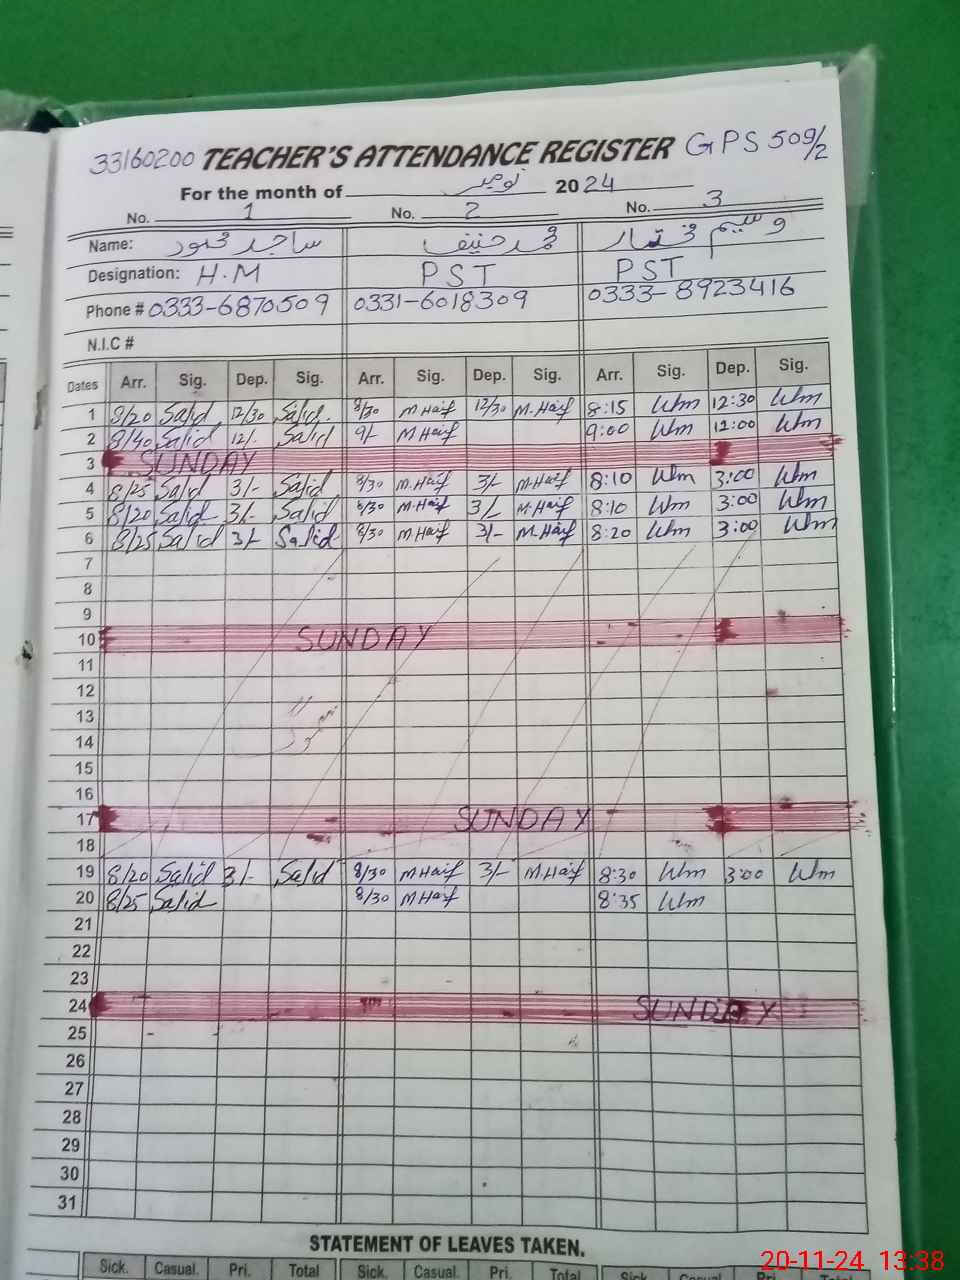 33160200 TEACHER'S ATTENDANCE REGISTER GPS 509/2
For the month of نومبر 2024
No. 1 No. 2 No. 3
Name: ساجد محمود محمد حنیف وسیم مختار
Designation: H.M PST PST
Phone # 0333-6870509 0331-6018309 0333-8923416
N.I.C #
Dates Arr. Sig. Dep. Sig. Arr. Sig. Dep. Sig. Arr. Sig. Dep. Sig.
1 8/20 Sajid 12/30 Sajid 8/30 M.Hanif 12/30 M.Hanif 8:15 12:30
2 8/40 Sajid 12/- Sajid 9/- M Hanif 9:00 12:00
3 SUNDAY
4 8/25 Sajid 3/- Sajid 8/30 M.Hanif 3/- M.Hanif 8:10 3:00
5 8/20 Sajid 3/- Sajid 8/30 M.Hanif 3/- M.Hanif 8:10 3:00
6 8/25 Sajid 3/- Sajid 8/30 M Hanif 3/- M.Hanif 8:20 3:00
7
8
9
10 SUNDAY
11
12
13
14
15
16
17 SUNDAY
18
19 8/20 Sajid 3/- Sajid 8/30 M Hanif 3/- M Hanif 8:30 3:00
20 8/25 Sajid 8/30 M Hanif 8:35
21
22
23
24 SUNDAY
25
26
27
28
29
30
31
STATEMENT OF LEAVES TAKEN.
Sick. Casual. Pri. Total Sick. Casual. Pri. Total Sick. Casual. Pri. Total
20-11-24 13:38